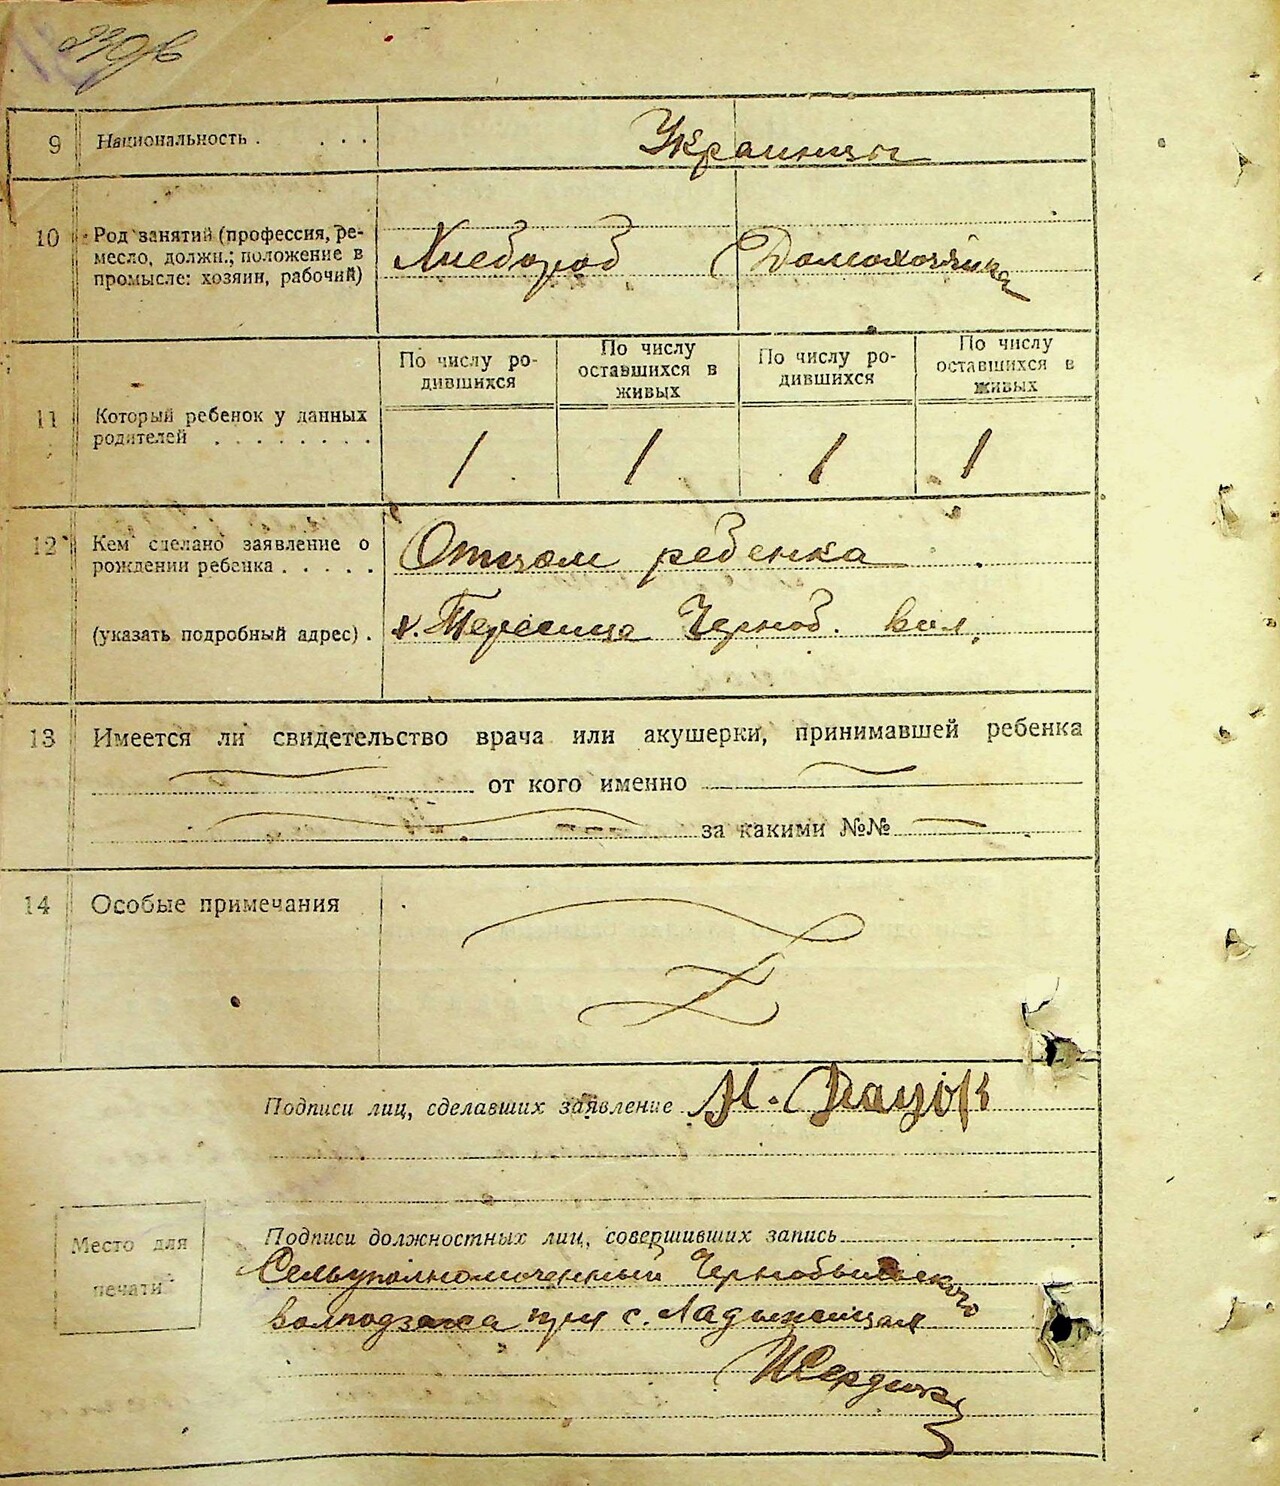 9 Национальность . . . . Украинцы
10 Род занятий (профессия, ре-
месло, должн.; положение в
промысле: хозяин, рабочий)
Хлебороб Домохозяйка
11 Который ребенок у данных
родителей . . . . . . . .
По числу ро-
дившихся
По числу
оставшихся в
живых
По числу ро-
дившихся
По числу
оставшихся в
живых
1 1 1 1
12 Кем сделано заявление о
рождении ребенка . . . . .
Отцом ребенка
(указать подробный адрес) .
Черноб. вол.
13 Имеется ли свидетельство врача или акушерки, принимавшей ребенка
от кого именно
за какими №№
14 Особые примечания
Подписи лиц, сделавших заявление
Место для
печати
Подписи должностных лиц, совершивших запись
Сельуполномоченный Чернобыльского
волподзагса при с. Ладыжичах